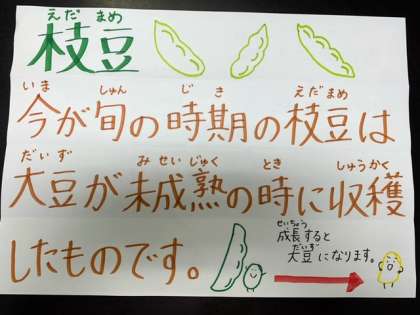 えだ まめ
枝豆
いま しゅん じ き えだまめ
今が旬の時期の枝豆は
だい ず み せいじゅく とき しゅうかく
大豆が未成熟の時に収穫
したものです。
せいちょう
成長すると
だいず
大豆になります。